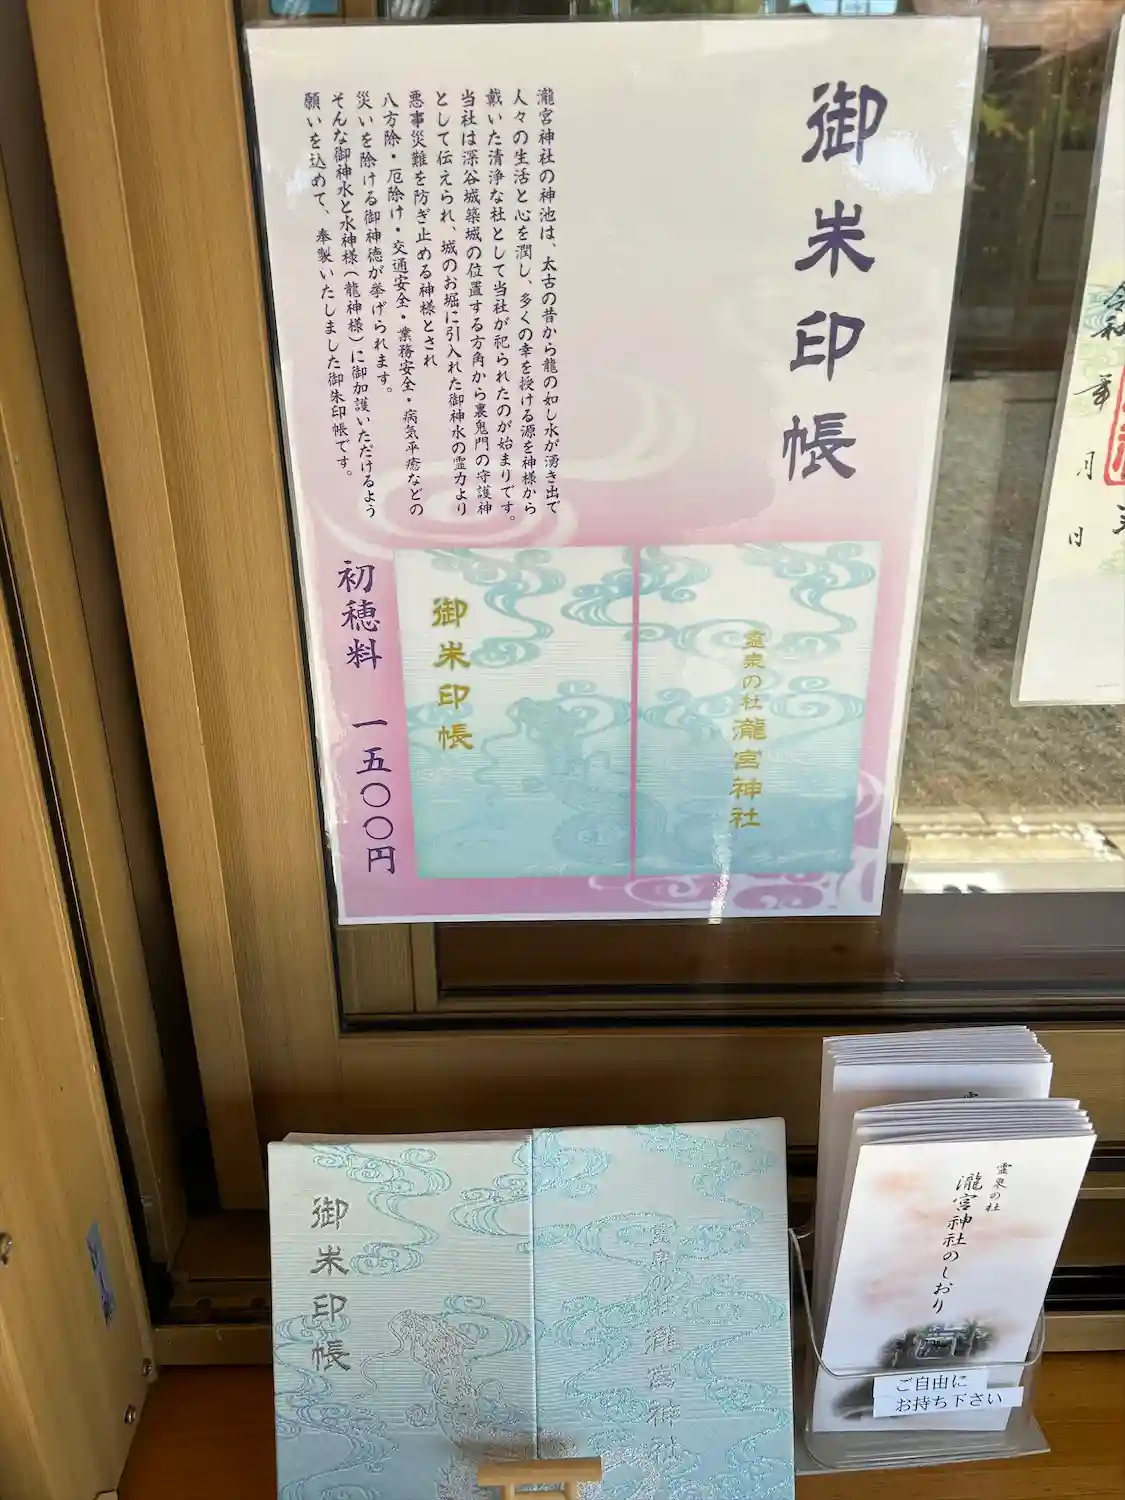 御朱印帳
瀧宮神社の神池は、太古の昔から龍の如し水が湧き出で
人々の生活と心を潤し、多くの幸を授ける源を神様から
戴いた清浄な杜として当社が祀られたのが始まりです。
当社は深谷城築城の位置する方角から裏鬼門の守護神
として伝えられ、城のお堀に引入れた御神水の霊力より
悪事災難を防ぎ止める神様とされ
八方除・厄除け・交通安全・業務安全・病気平癒などの
災いを除ける御神徳が挙げられます。
そんな御神水と水神様(龍神様)に御加護いただけるよう
願いを込めて、奉製いたしました御朱印帳です。
初穂料 一五〇〇円
霊泉の杜
瀧宮神社
御朱印帳
年
月
日
霊泉の杜 瀧宮神社
御朱印帳
霊
霊泉の杜
瀧宮神社のしおり
ご自由に
お持ち下さい